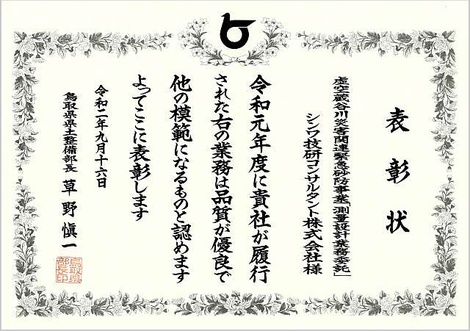 表彰状
虚空蔵谷川災害関連緊急砂防事業「測量設計業務委託」
シンワ技研コンサルタント株式会社様
令和元年度に貴社が履行
された右の業務は品質が優良で
他の模範になるものと認めます
よってここに表彰します
令和二年九月十六日
鳥取県県土整備部長 草野愼一